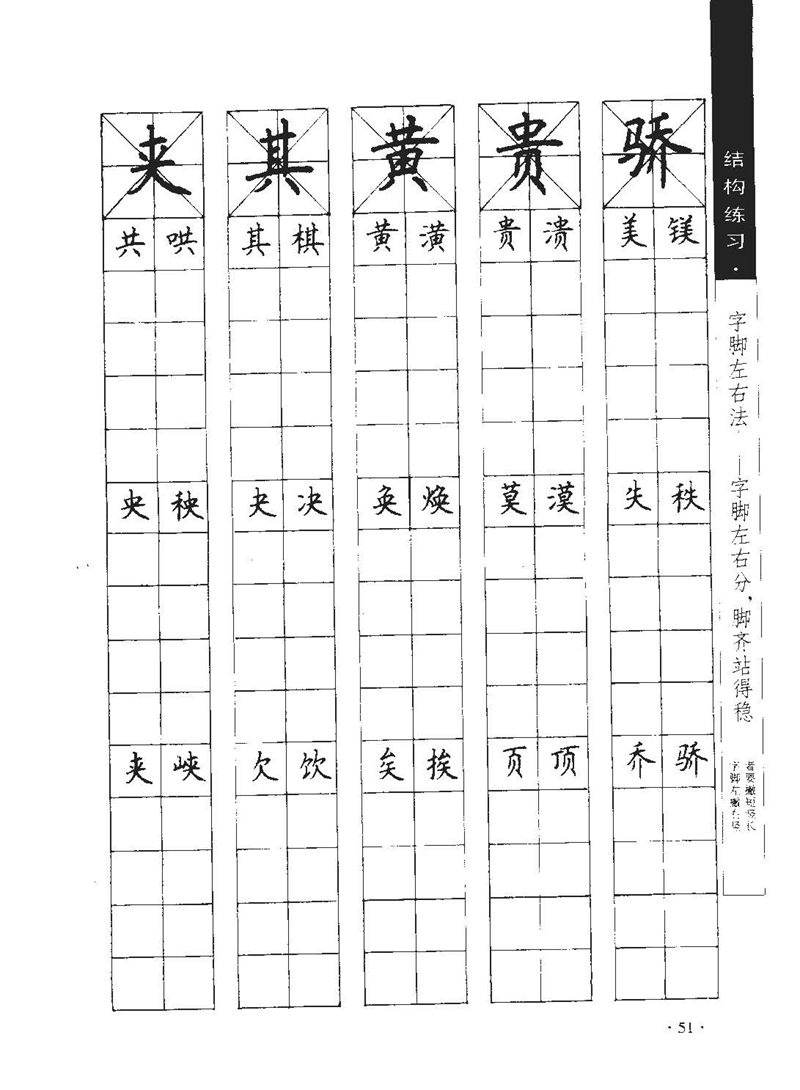 结构练习·
字脚左右法
字脚左右分，脚齐站得稳
字脚左撇右竖
者要撇短竖长
骄 贵 黄 其 夹
美 镁 贵 溃 黄 潢 其 棋 共 哄
失 秩 莫 漠 奂 焕 夬 决 央 秧
乔 骄 页 顶 矣 挨 欠 饮 夹 峡
·51·